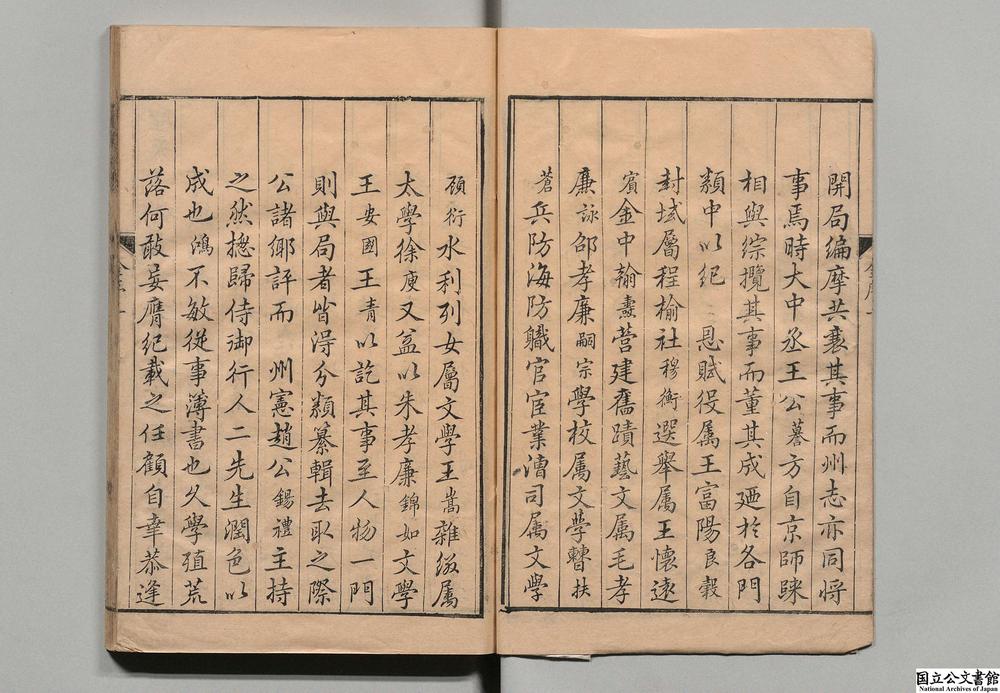 開局編摩共襄其事而州志亦同將
事焉時大中丞王公&#x8B28;方自京師睐
相與綜攬其事而董其成廼於各門
類中以紀　恩賦役属王富陽良穀
封域屬程榆社穆衡選舉属王懷遠
賓金中翰壽營建舊蹟藝文属毛孝
廉詠邵孝廉嗣宗學校属文學瞽扶
蒼兵防海防職官宦業漕司属文學
顔衍水利列女屬文學王嵩雜綴属
太學徐庾又益以朱孝廉錦如文學
王安國王青以訖其事至人物一門
則與局者皆淂分類纂輯去取之際
公諸鄉評而　州憲趙公錫禮主持
之然揔歸侍御行人二先生潤色以
成也鴻不敏従事薄書也久學殖荒
落何敢妄膺纪載之任顧自幸恭逢
国立公文書館
National Archives of Japan